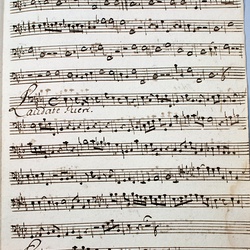 Laudate Pueri.